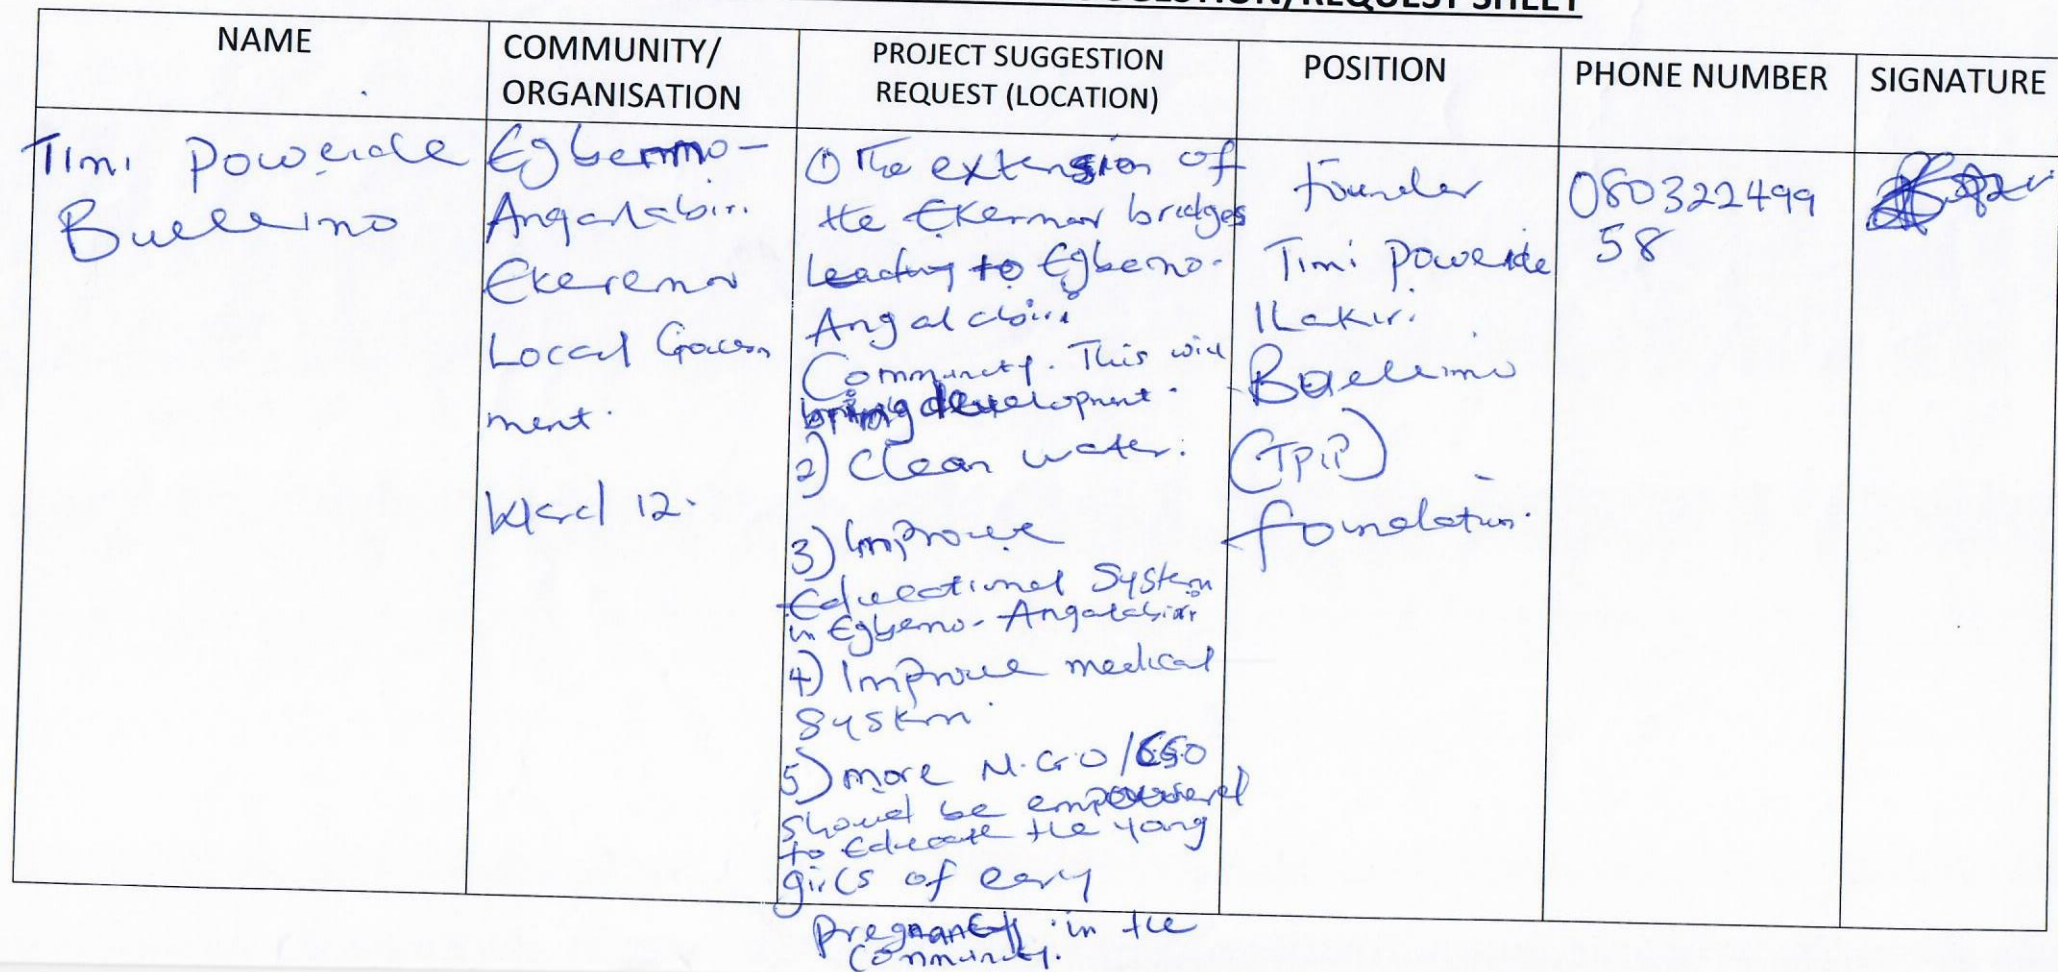 SUGGESTION/REQUEST SHEET
NAME
COMMUNITY/
ORGANISATION
PROJECT SUGGESTION
REQUEST (LOCATION)
POSITION
PHONE NUMBER
SIGNATURE
Timi Powerde
Buellimo
Egbemo-
Angalabiri.
Ekeremor
Local Govern
ment.
Ward 12.
① The extension of
the Ekermor bridges
leading to Egbemo-
Angalabiri
Community. This will
bring development.
2) Clean water.
3) Improve
Educational System
in Egbemo-Angalabiri
4) Improve medical
System.
5) more N.G.O/CSO
should be empowered
to Educate the young
girls of early
Pregnancy in the
Community.
Founder
Timi Powerde
Ilakiri
Buellimo
(TPIP)
foundation.
080322499
58